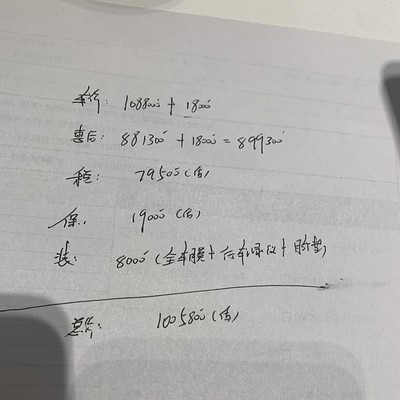 车价: 1088000 + 18000
惠后: 881300 + 18000 = 899300
税: 79500 (估)
保: 19000 (估)
装: 8000 (全车膜 + 行车记录仪 + 脚垫)
总价: 1005800 (估)